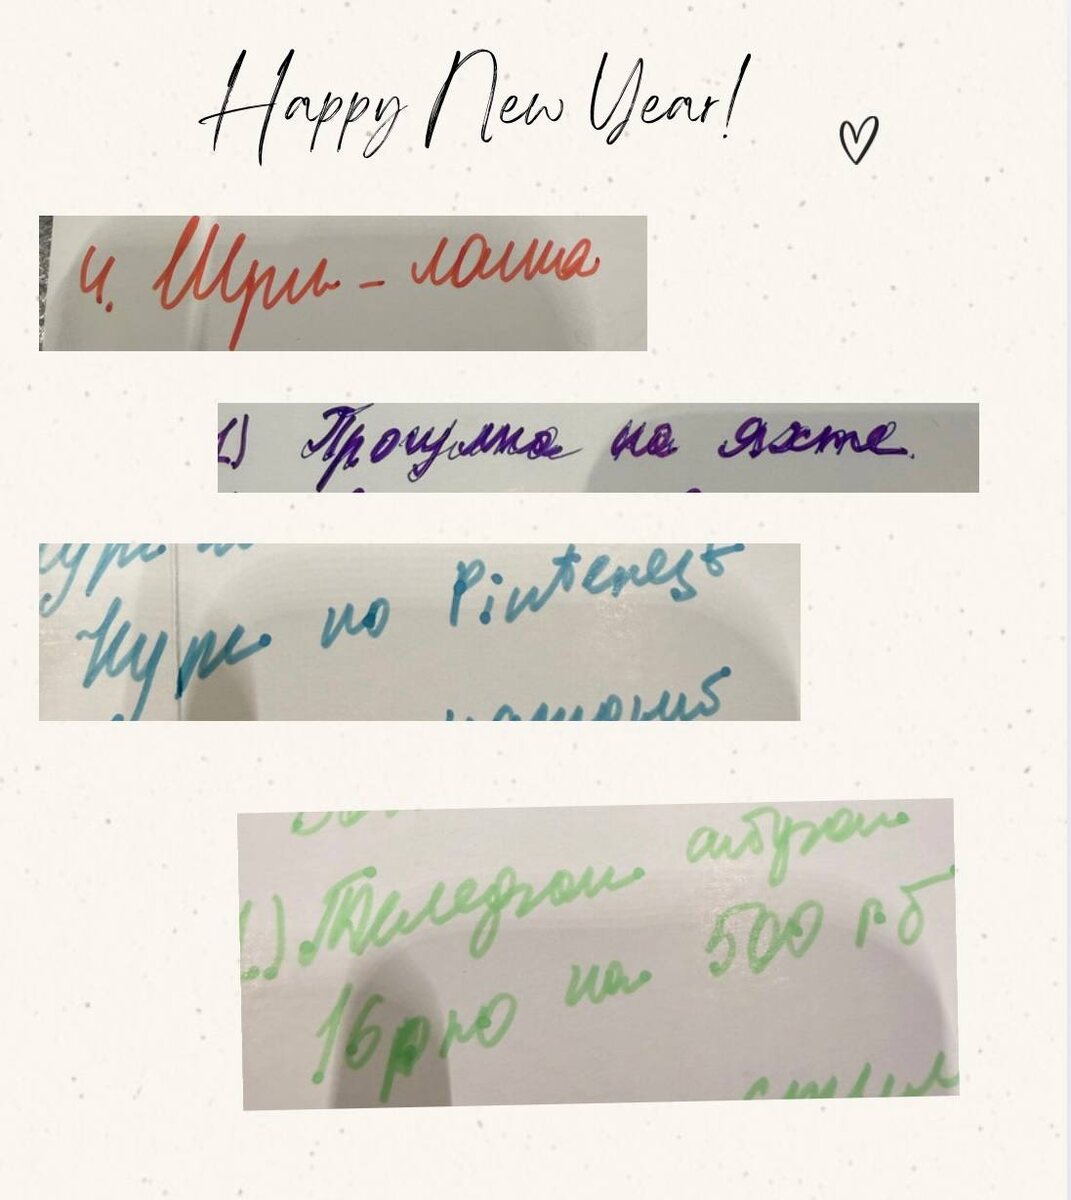 Happy New Year!
4. Шри-ланка
1) Прогулка на яхте.
Курс по Pinterest
1) Телефон айфон
16 pro на 500 гб